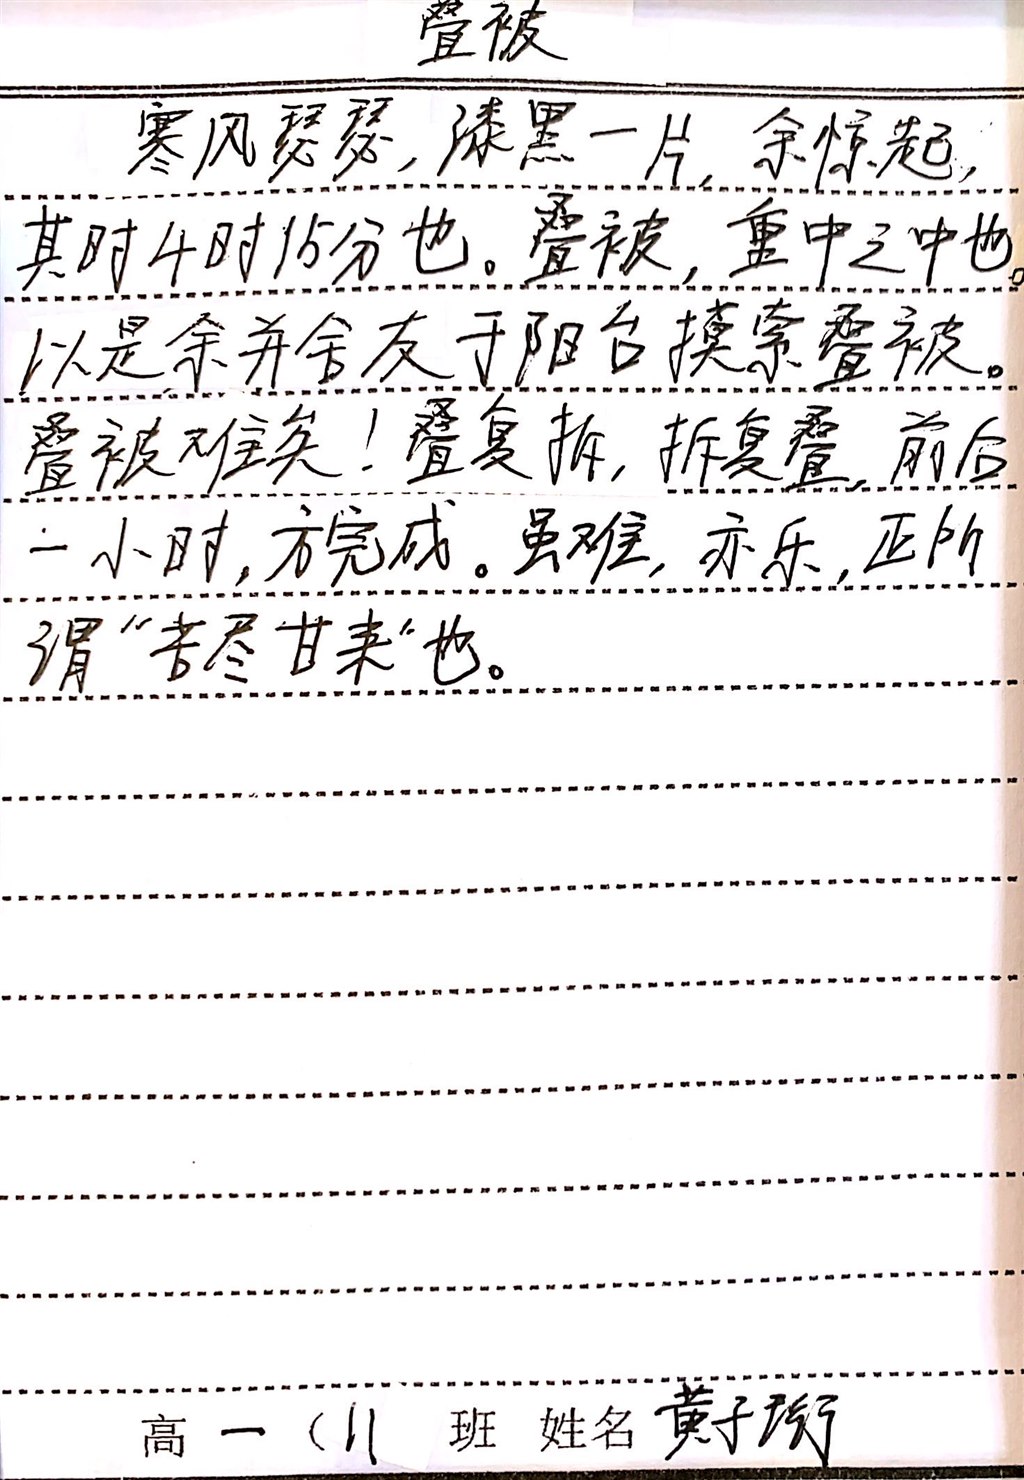 叠被
寒风瑟瑟,漆黑一片,余惊起,
其时4时15分也。叠被,重中之中也。
以是余并舍友于阳台摸索叠被。
叠被难矣!叠复拆,拆复叠,前后
一小时,方完成。虽难,亦乐,正所
谓“苦尽甘来”也。
高一(11 班 姓名 黄子珩